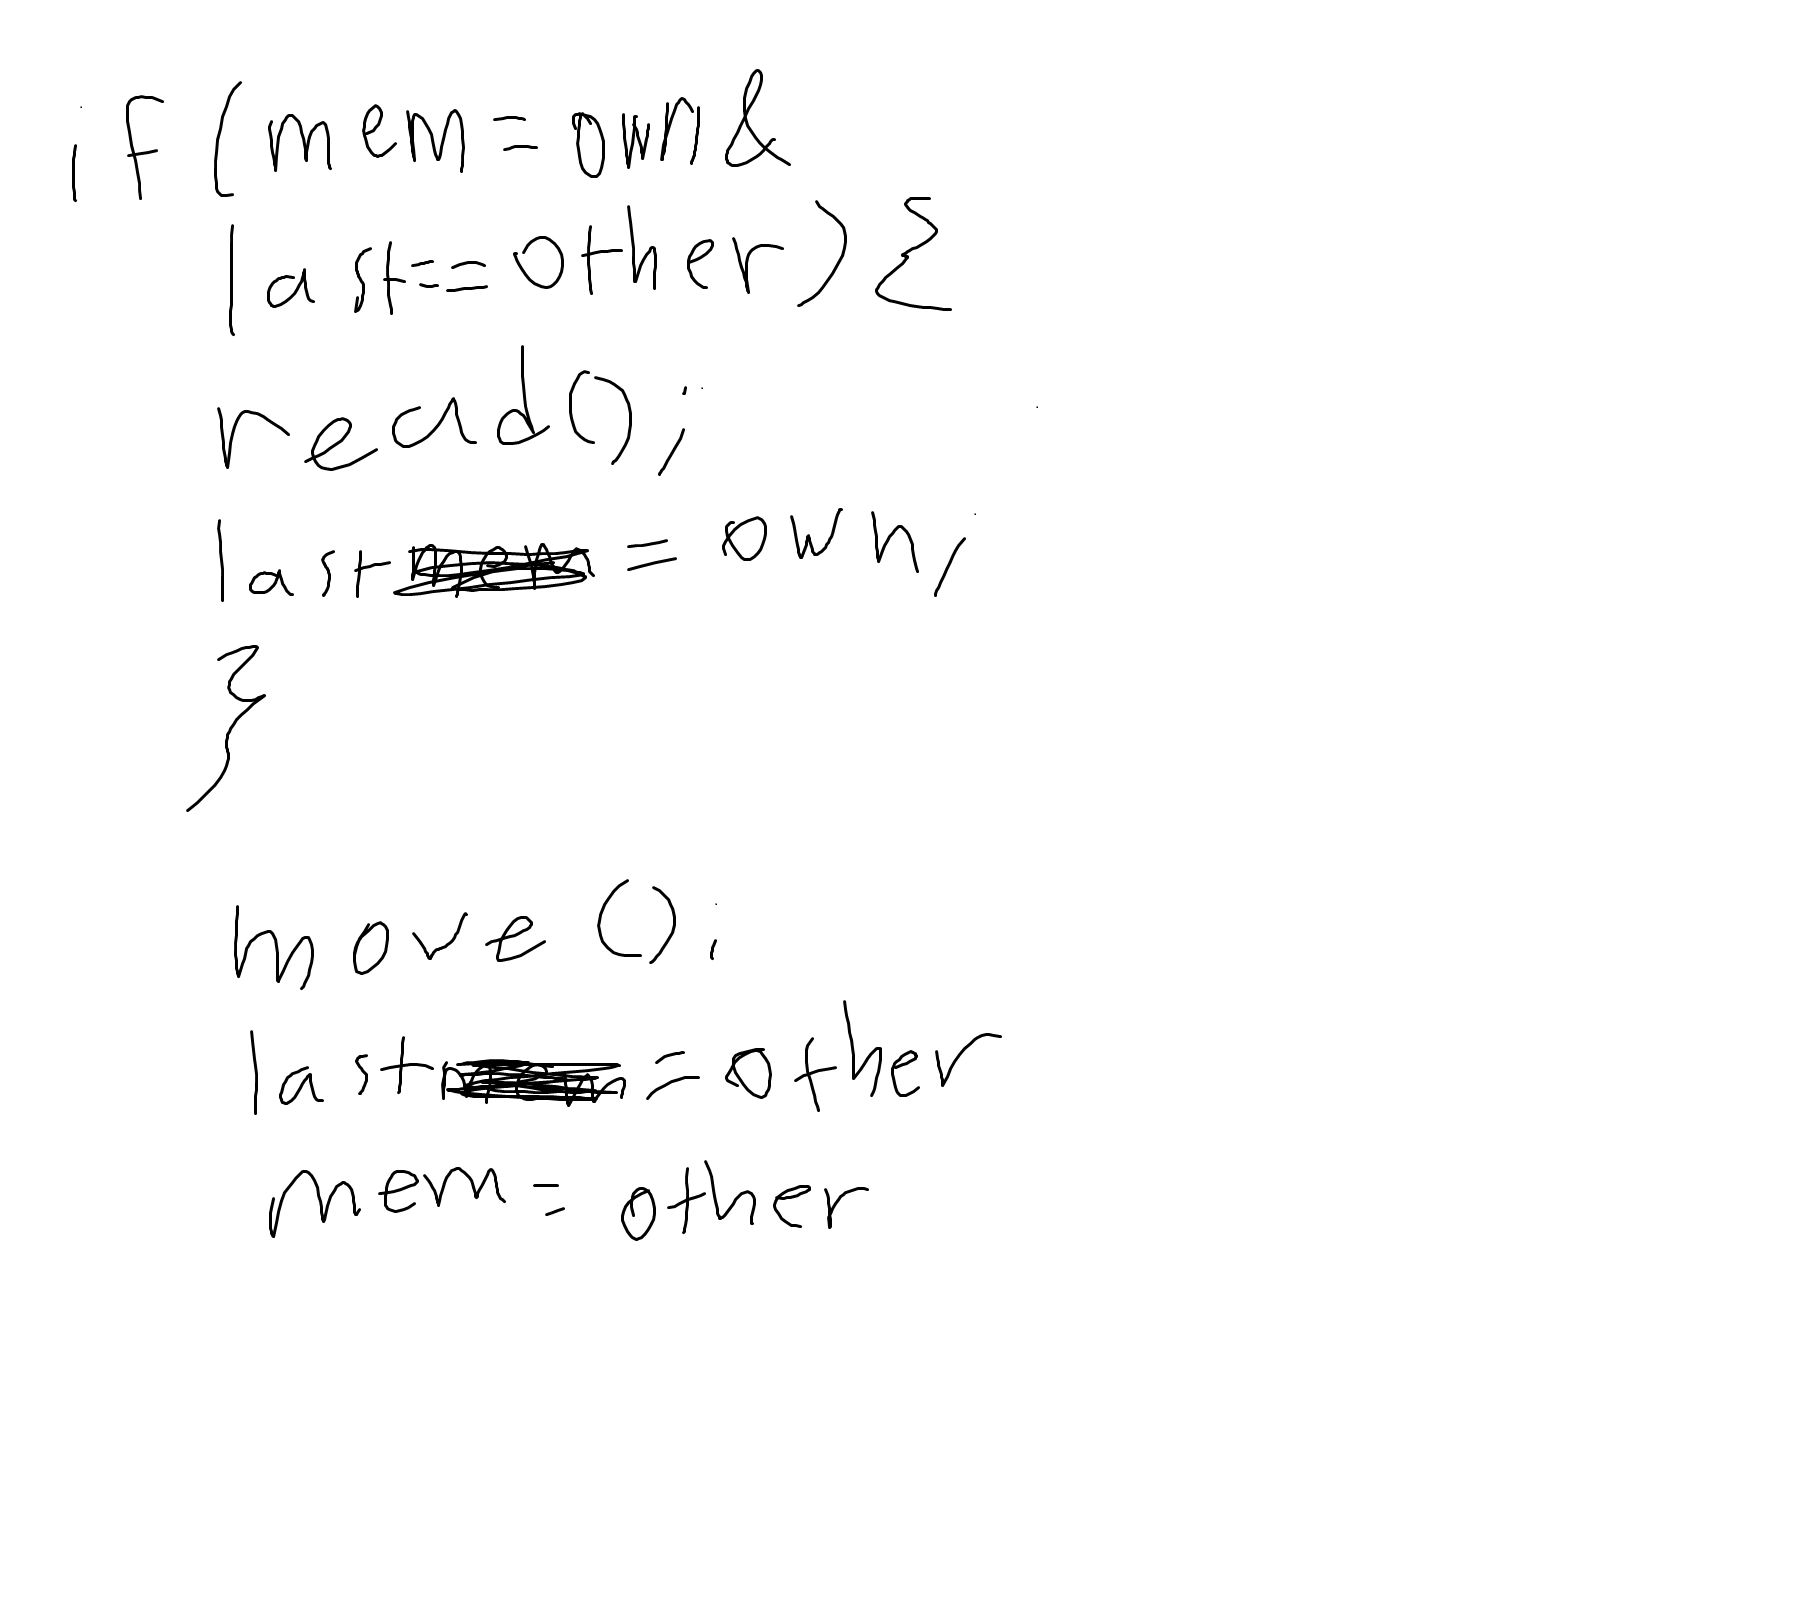 if (mem=own &
last==other) {
read();
last = own;
}
move();
last = other
mem = other